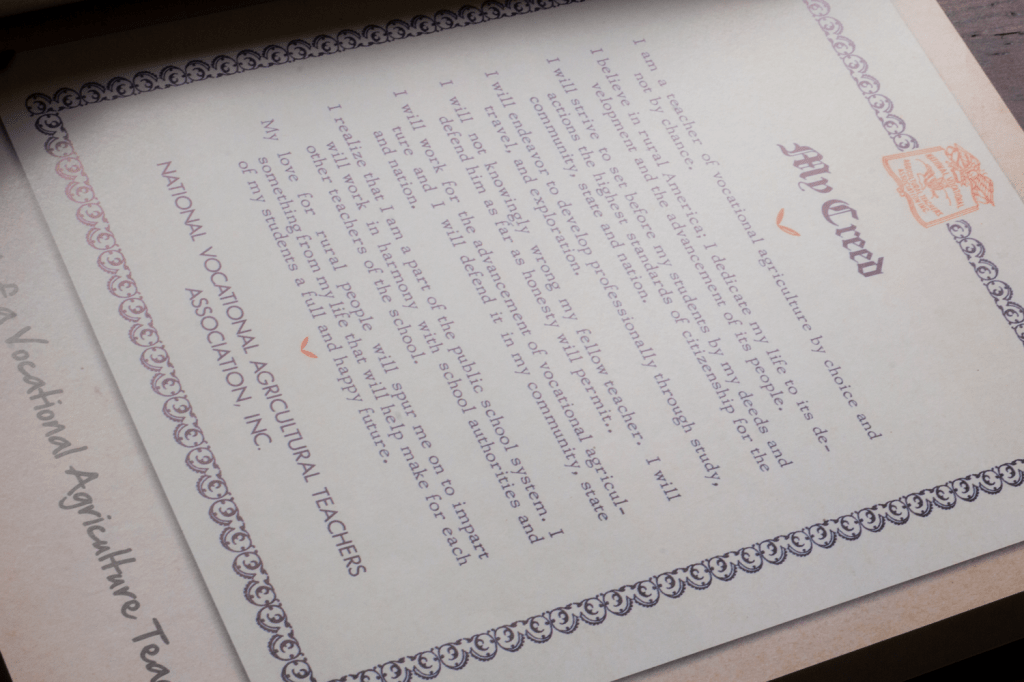 My Creed
I am a teacher of vocational agriculture by choice and
not by chance.
I believe in rural America; I dedicate my life to its de-
velopment and the advancement of its people.
I will strive to set before my students by my deeds and
actions the highest standards of citizenship for the
community, state and nation.
I will endeavor to develop professionally through study,
travel, and exploration.
I will not knowingly wrong my fellow teacher. I will
defend him as far as honesty will permit..
I will work for the advancement of vocational agricul-
ture and I will defend it in my community, state
and nation.
I realize that I am a part of the public school system. I
will work in harmony with school authorities and
other teachers of the school.
My love for rural people will spur me on to impart
something from my life that will help make for each
of my students a full and happy future.
NATIONAL VOCATIONAL AGRICULTURAL TEACHERS
ASSOCIATION, INC.
f a Vocational Agriculture Teac